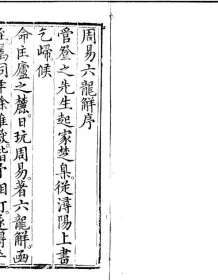 周易六龍解序
管登之先生起家楚臬從潯陽上書
乞歸候
命匡廬之麓日玩周易著六龍解函